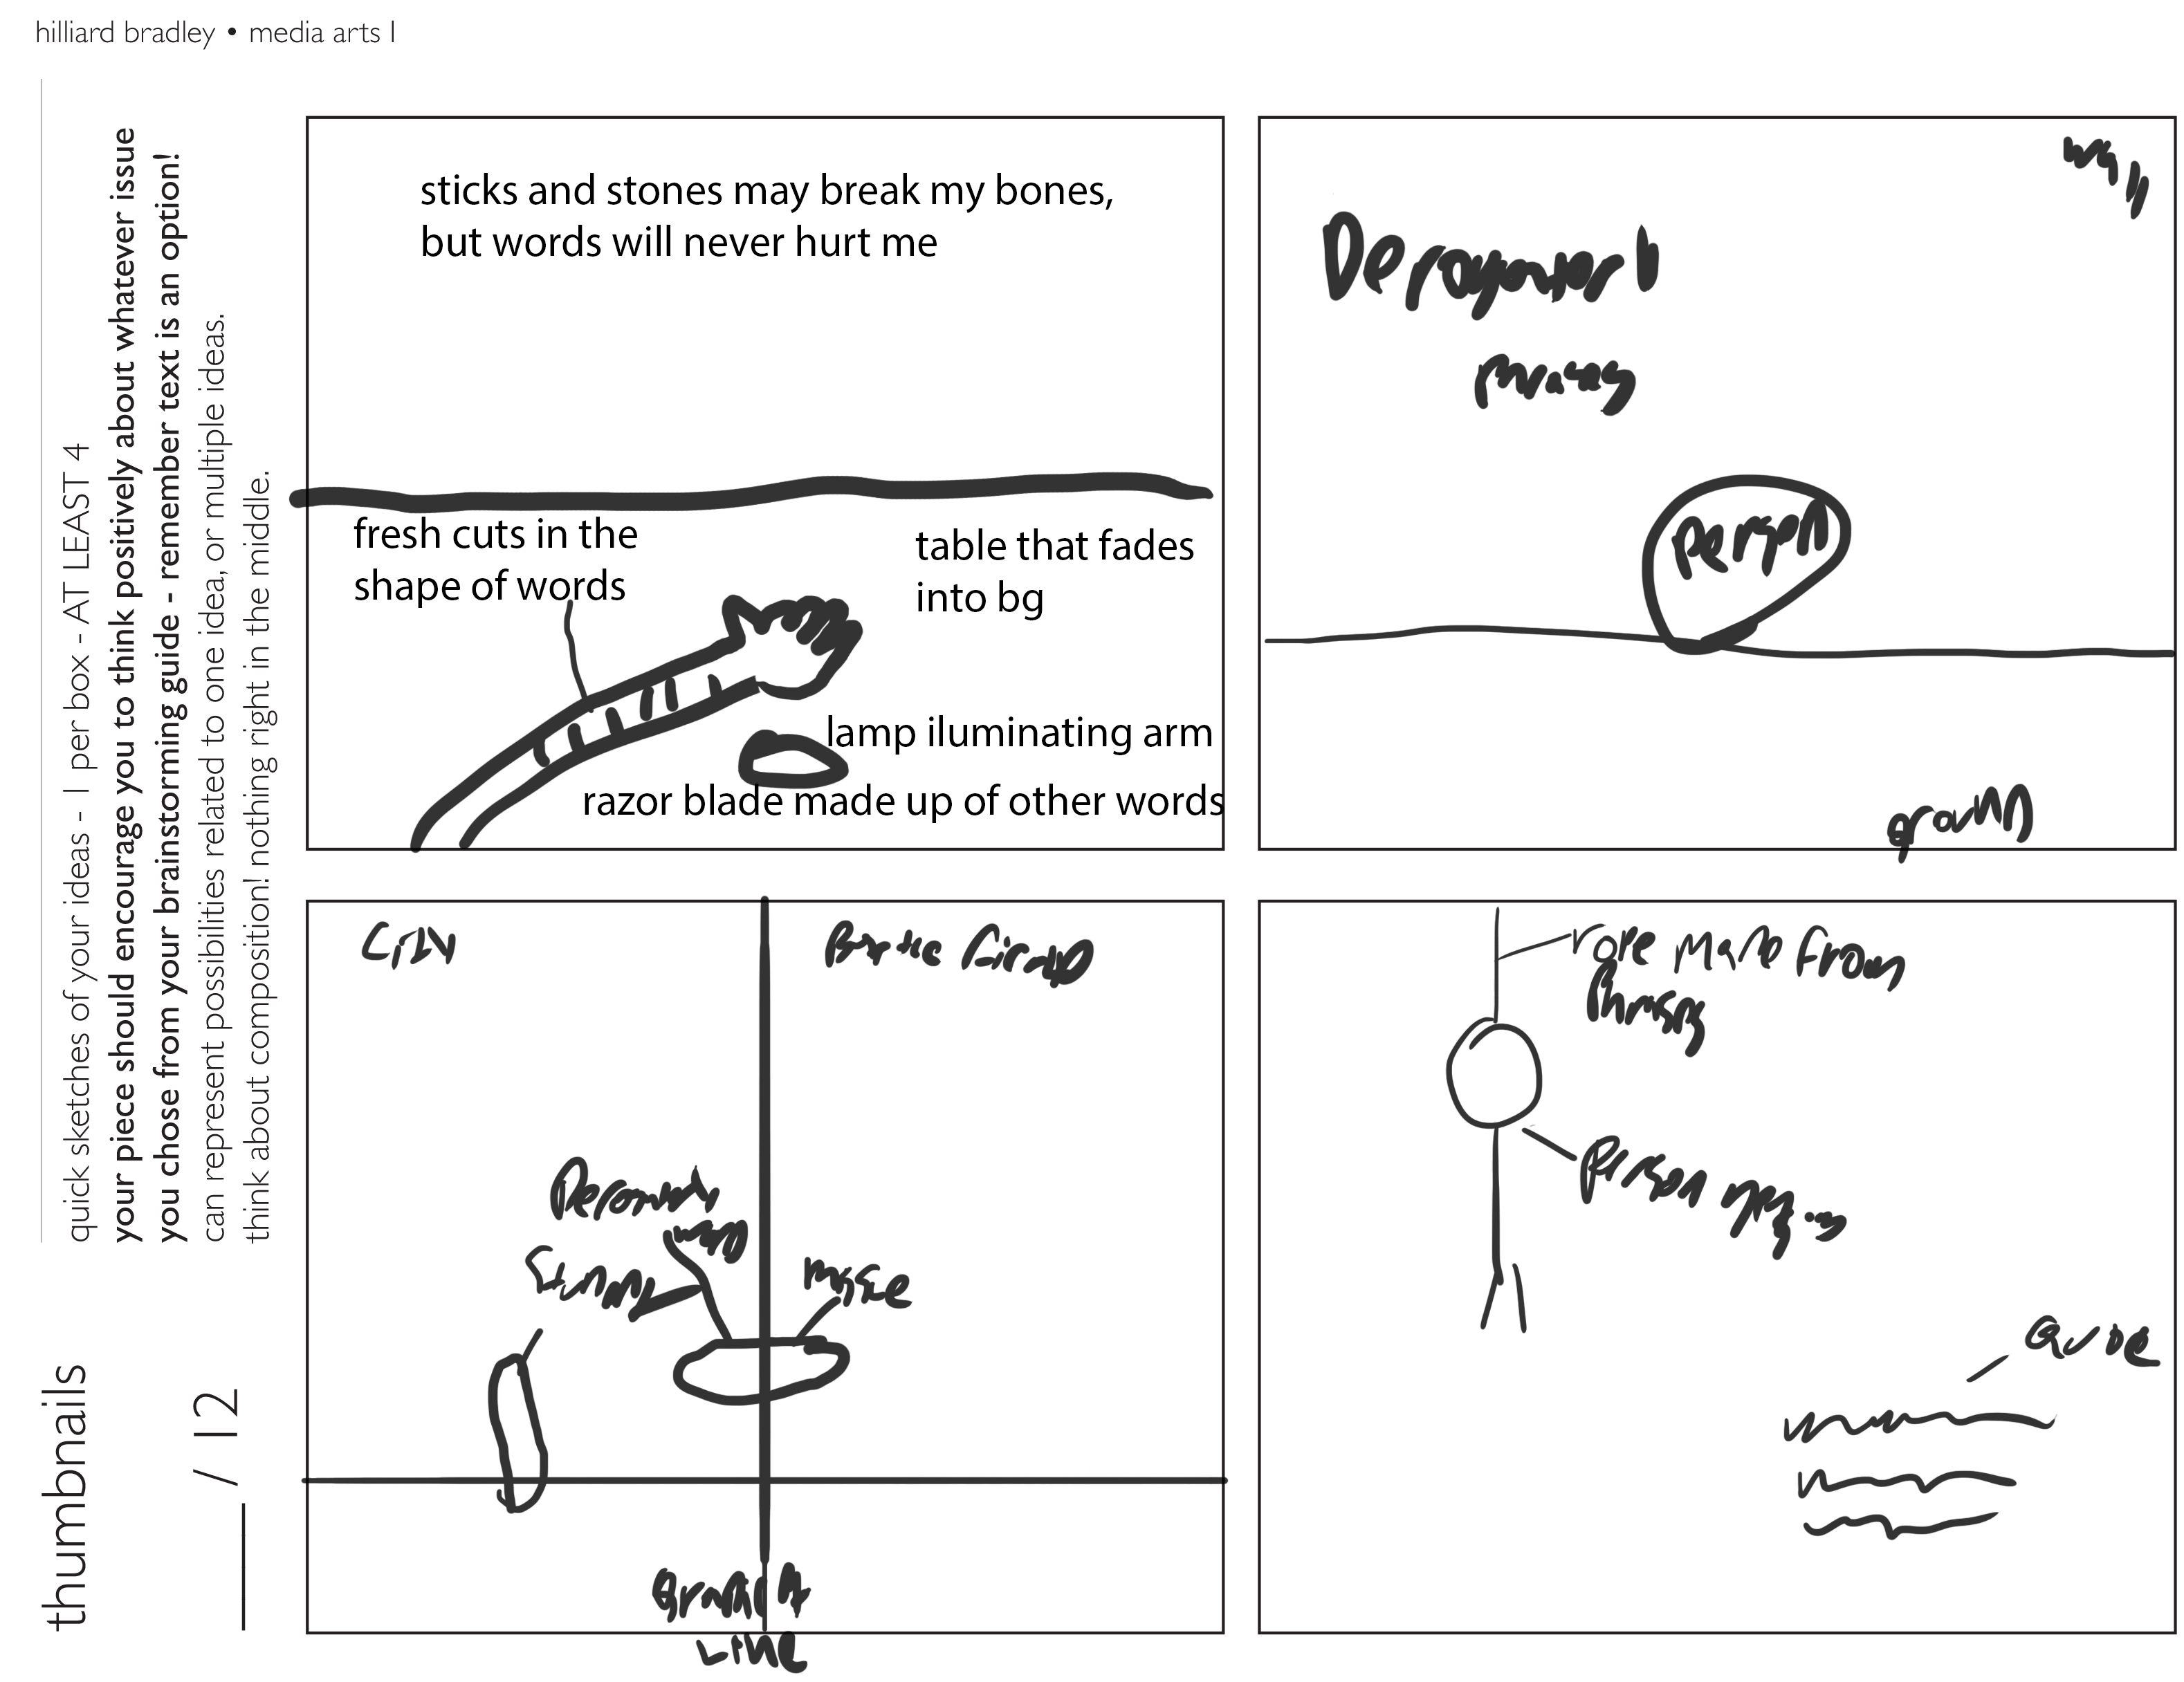 hilliard bradley • media arts I
thumbnails
____ / 12
quick sketches of your ideas - 1 per box - AT LEAST 4
your piece should encourage you to think positively about whatever issue
you chose from your brainstorming guide - remember text is an option!
can represent possibilities related to one idea, or multiple ideas.
think about composition! nothing right in the middle.
sticks and stones may break my bones,
but words will never hurt me
fresh cuts in the
shape of words
table that fades
into bg
lamp iluminating arm
razor blade made up of other words
wall
person
missile
Line
rope made from
Phrases
person